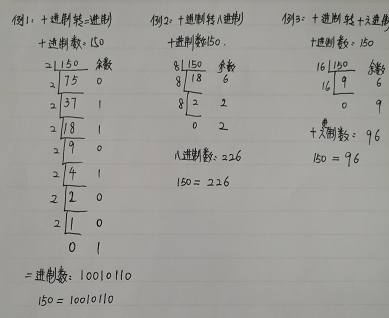 例1: 十进制转二进制
十进制数: 150
2 150 余数
2 75 0
2 37 1
2 18 1
2 9 0
2 4 1
2 2 0
2 1 0
0 1
二进制数: 10010110
150 = 10010110
例2: 十进制转八进制
十进制数150.
8 150 余数
8 18 6
8 2 2
0 2
八进制数: 226
150 = 226
例3: 十进制转十六进制
十进制数: 150
16 150 余数
16 9 6
0 9
十六制数: 96
150 = 96